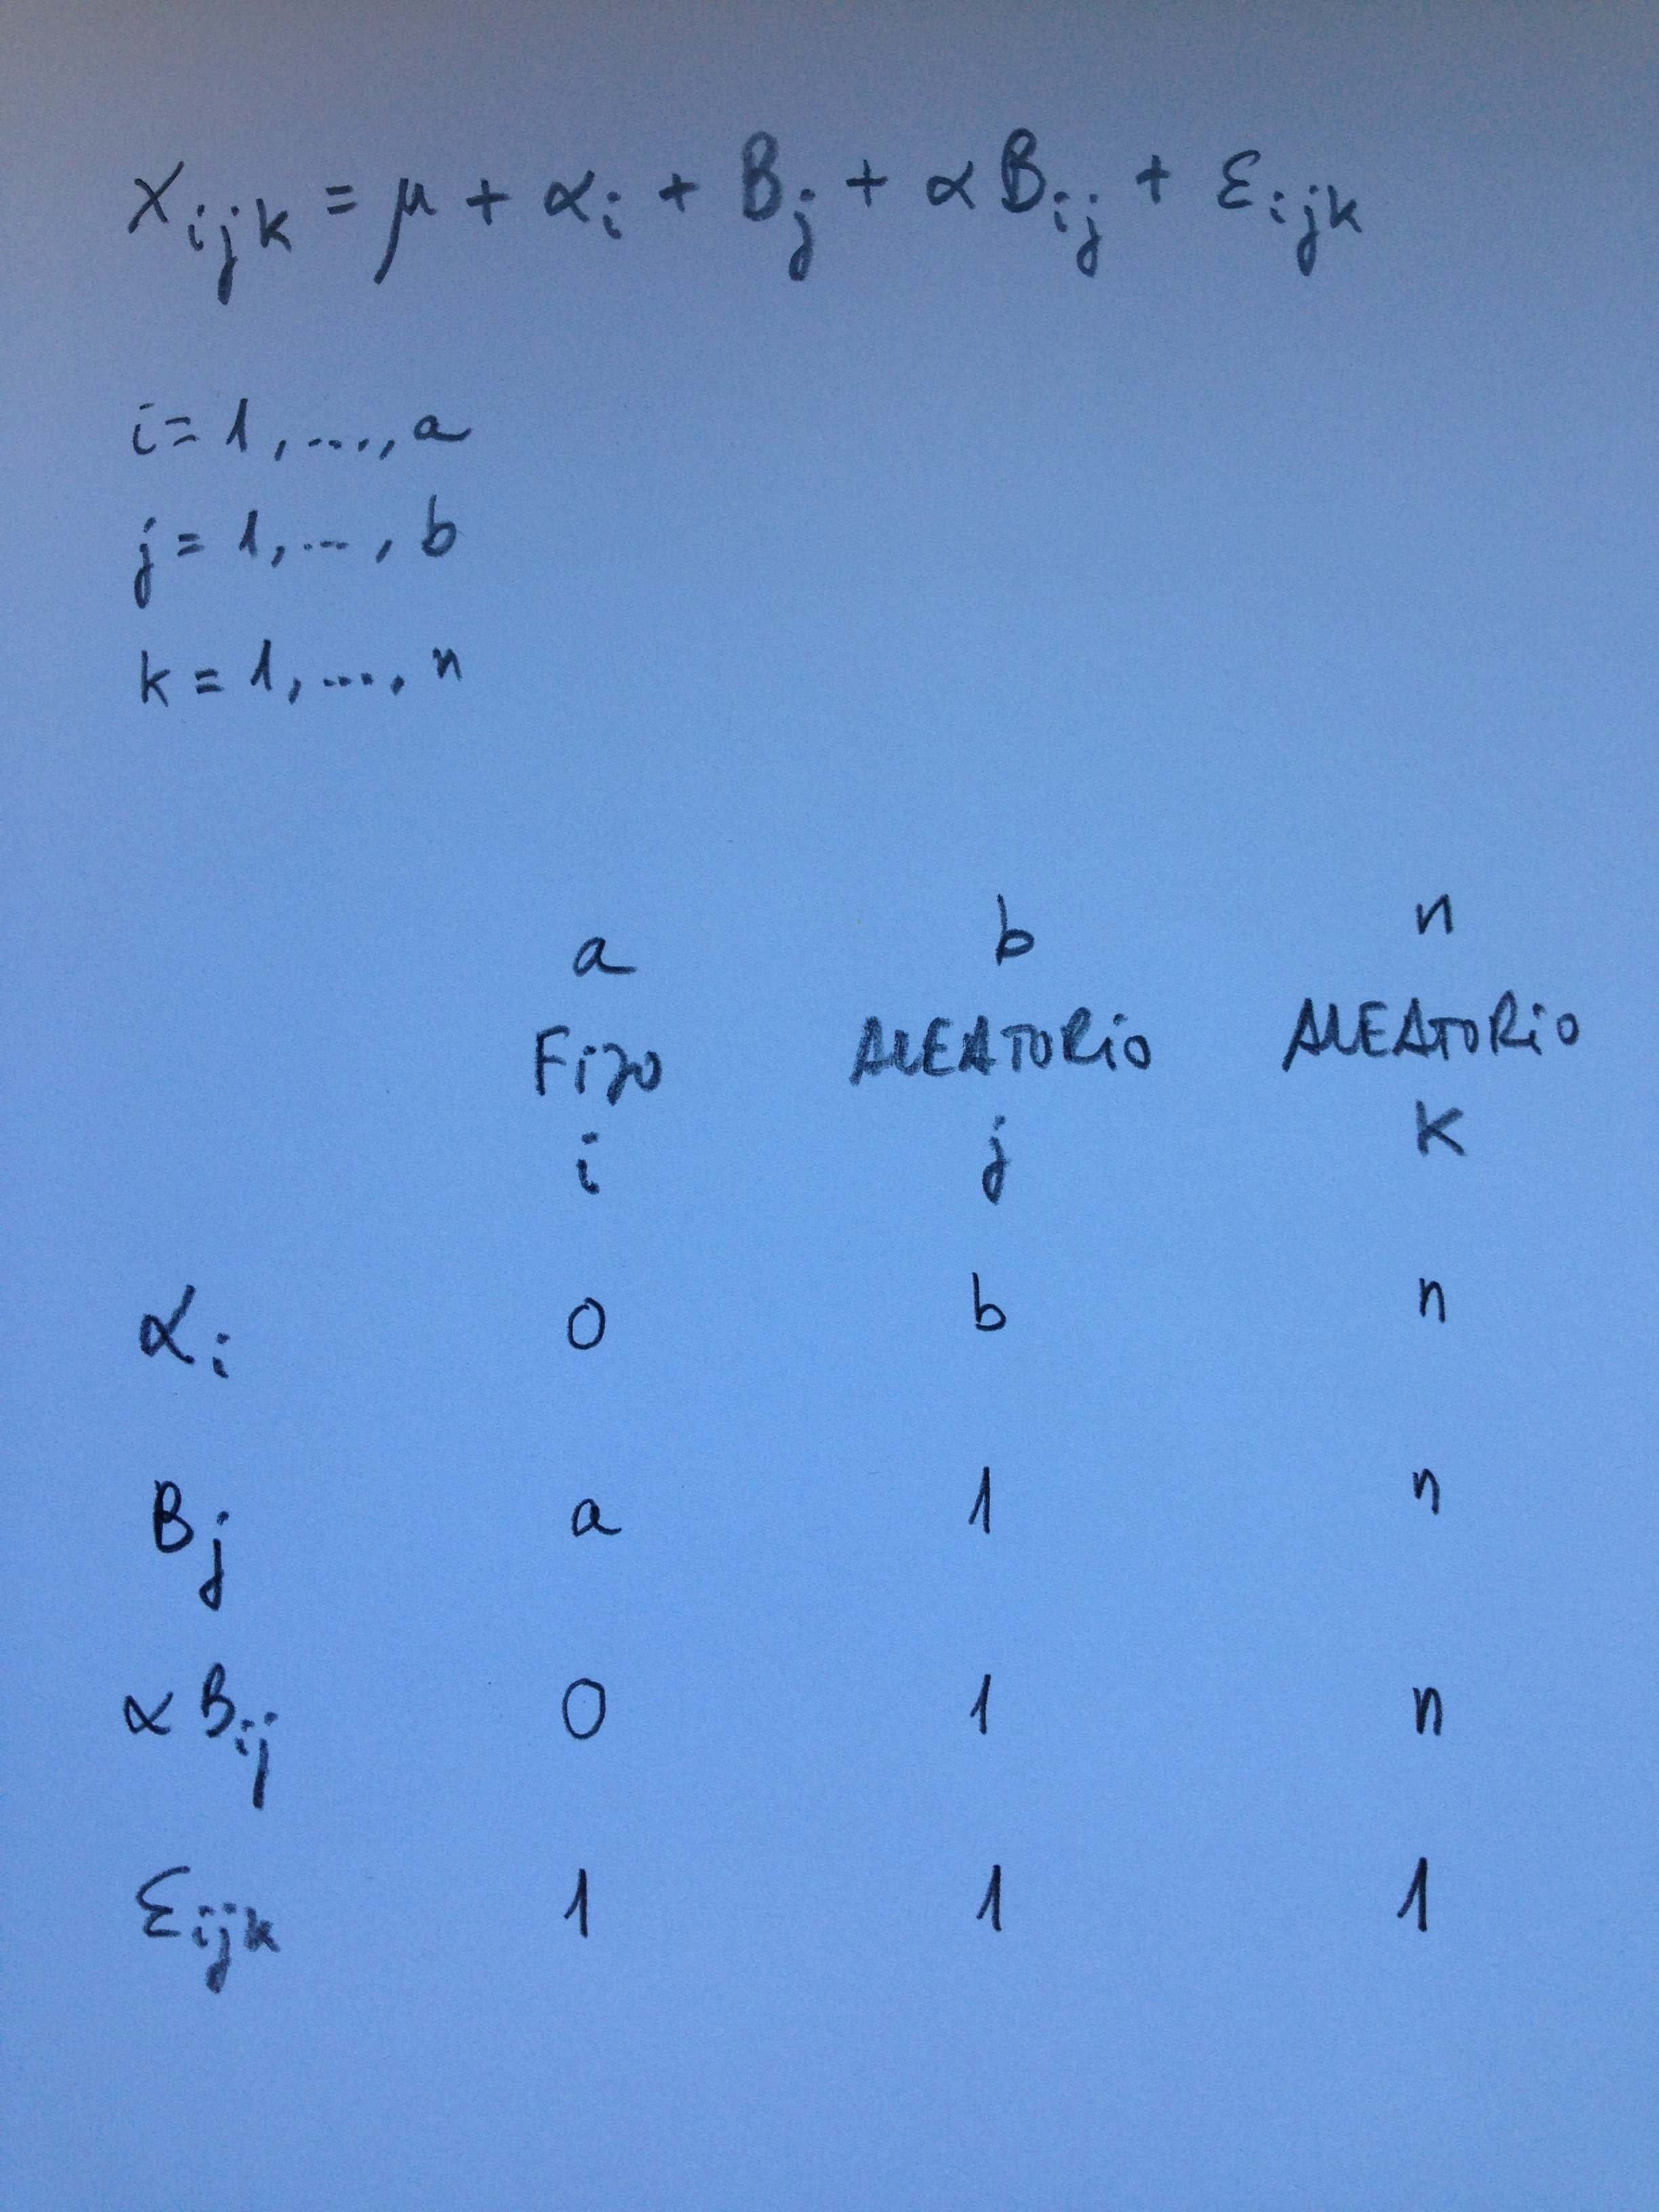 Xijk = μ + αi + Bj + αBij + εijk
i = 1, ...., a
j = 1, ..., b
k = 1, ...., n
a b n
Fijo ALEATORIO ALEATORIO
i j k
αi 0 b n
Bj a 1 n
αBij 0 1 n
εijk 1 1 1